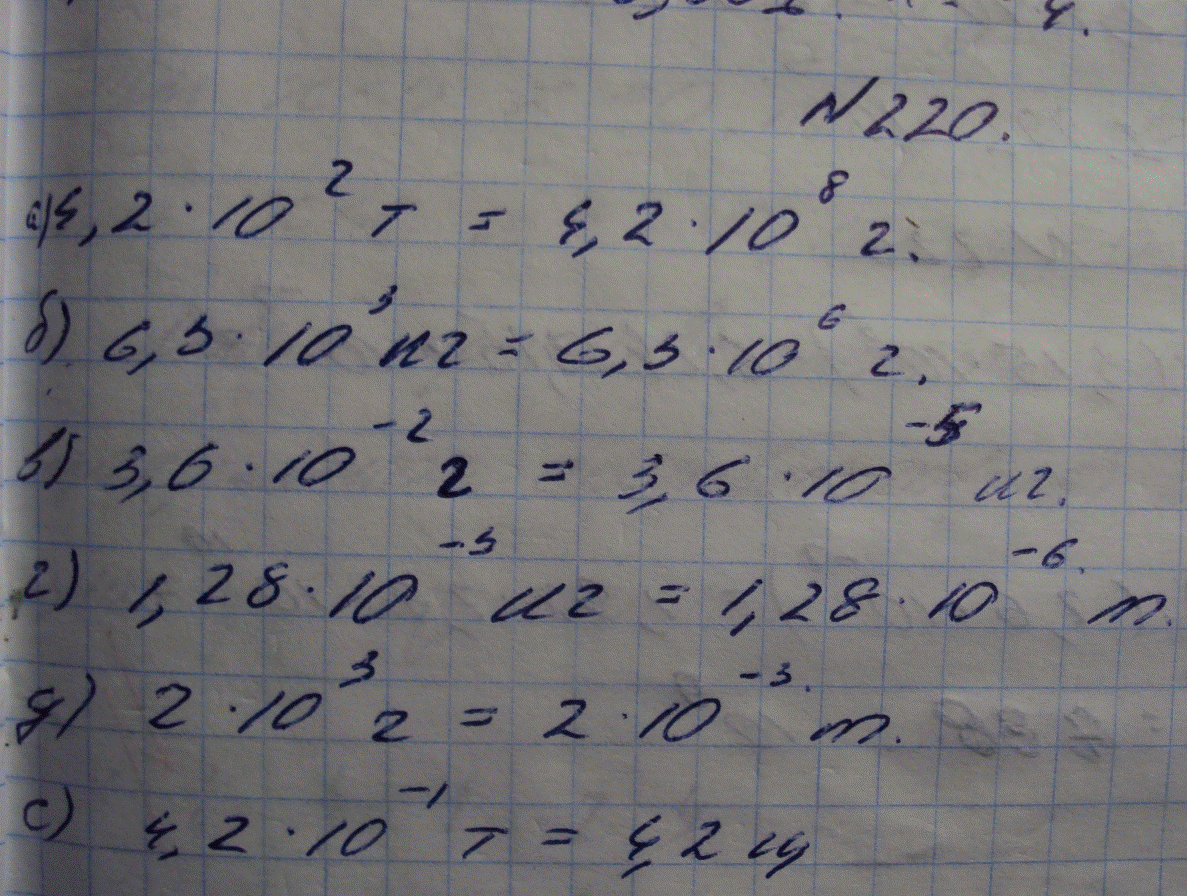 N 220.
а) 4,2 · 10² т = 4,2 · 10⁸ г.
б) 6,3 · 10³ кг = 6,3 · 10⁶ г.
в) 3,6 · 10⁻² г = 3,6 · 10⁻⁵ кг.
г) 1,28 · 10⁻³ кг = 1,28 · 10⁻⁶ т.
д) 2 · 10³ г = 2 · 10⁻³ т.
е) 4,2 · 10⁻¹ т = 4,2 ц